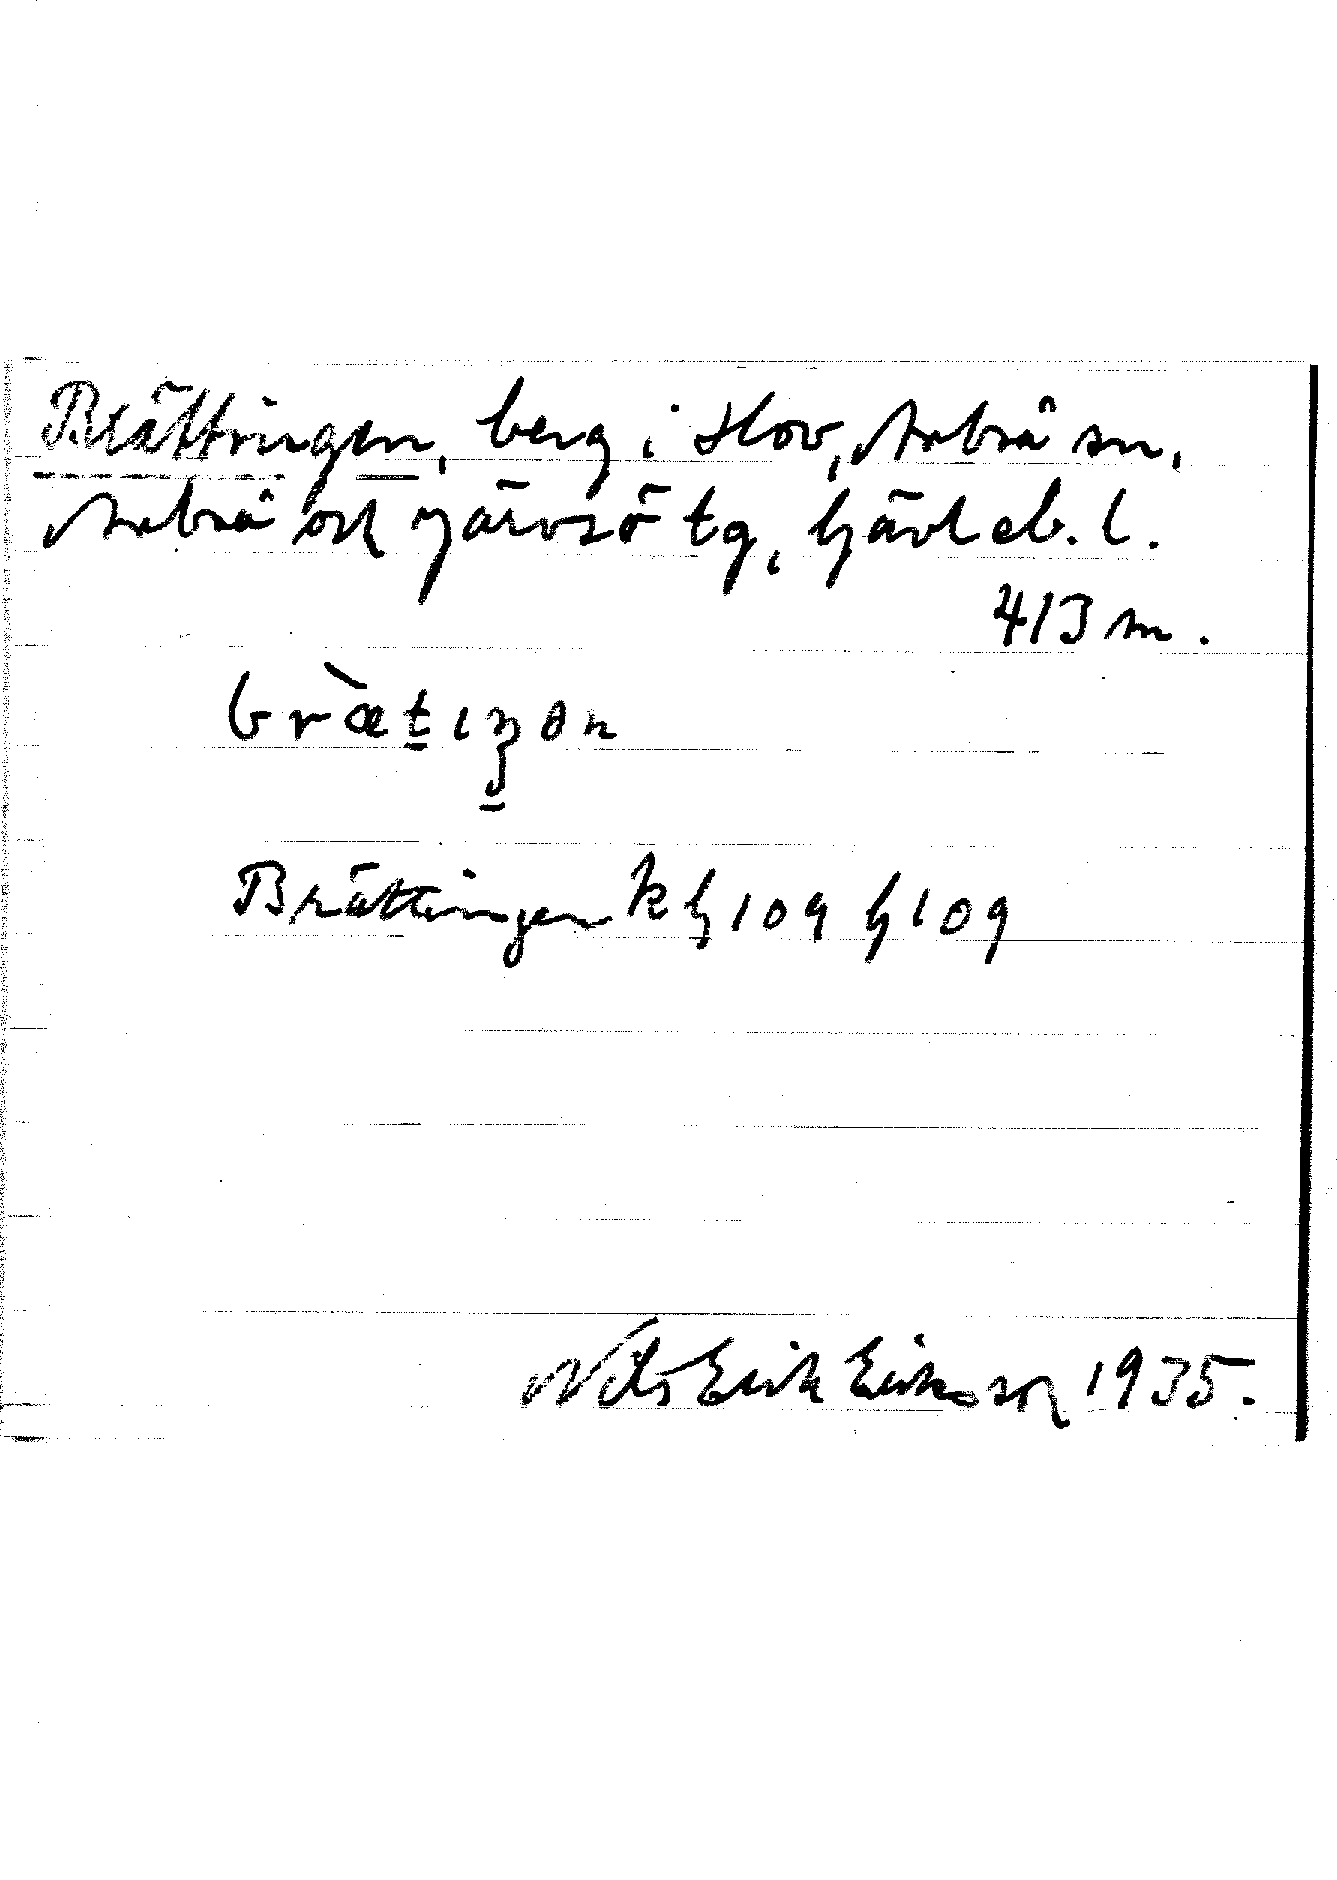 Brättringen, berg i Hov, Arbrå sn,
Arbrå och Järvsö tg, Gävleb. l.
413 m.
bræ̀tıŋən
Brättingen k h 109 h 109
Nils Erik Eriksson 1935.